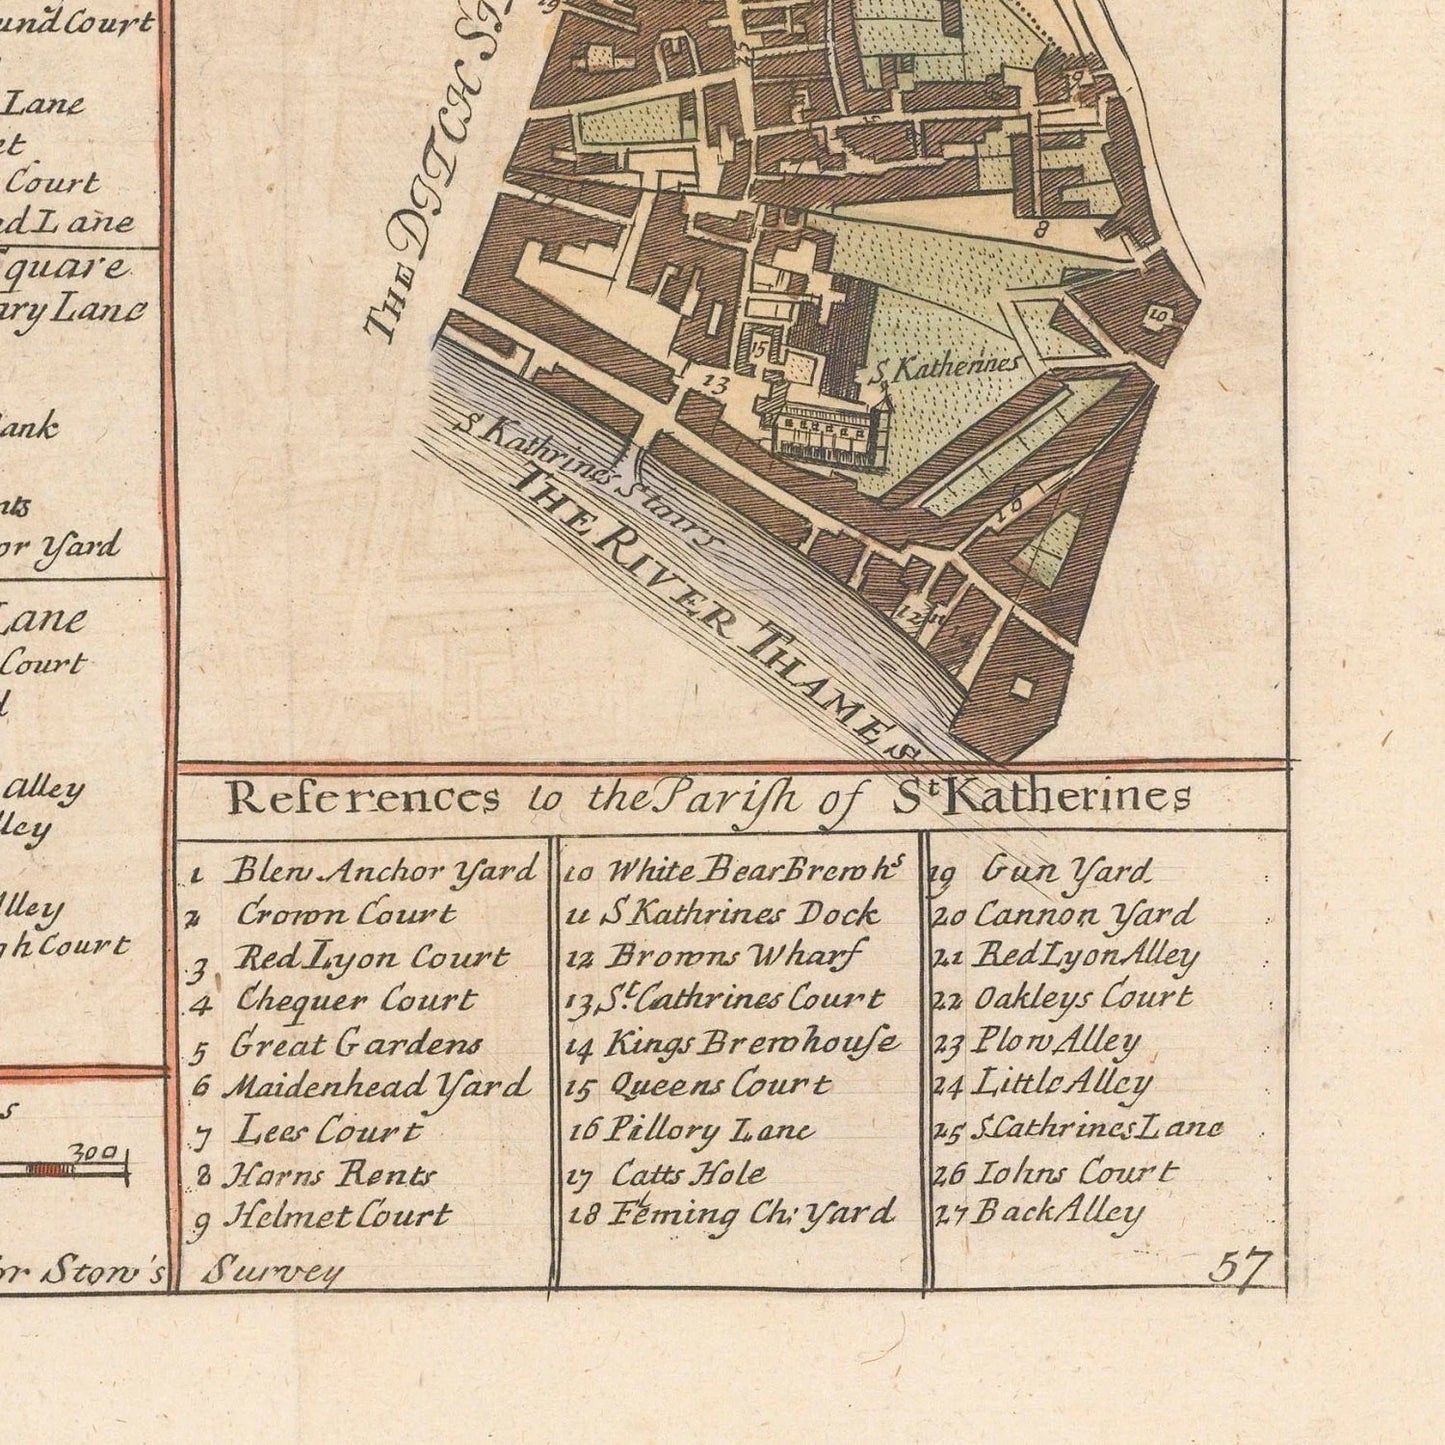 undCourt
Lane
et
Court
ed Lane
quare
ary Lane
ank
nts
or Yard
Lane
Court
d
Alley
lley
Alley
ghCourt
s
300
or Stow's Survey
THE DITCH S
19
27
19
25
17
8
10
15
13
S. Katherines
S. Kathrines Stairs
THE RIVER THAMES
12
11
References to the Pariſh of St Katherines
1 Blew Anchor Yard
2 Crown Court
3 Red Lyon Court
4 Chequer Court
5 Great Gardens
6 Maidenhead Yard
7 Lees Court
8 Horns Rents
9 Helmet Court
10 White Bear Brewhs
11 S Kathrines Dock
12 Browns Wharf
13 St. Cathrines Court
14 Kings Brewhouſe
15 Queens Court
16 Pillory Lane
17 Catts Hole
18 Fleming Ch: Yard
19 Gun Yard
20 Cannon Yard
21 Red Lyon Alley
22 Oakleys Court
23 Plow Alley
24 Little Alley
25 S. Cathrines Lane
26 Iohns Court
27 Back Alley
57